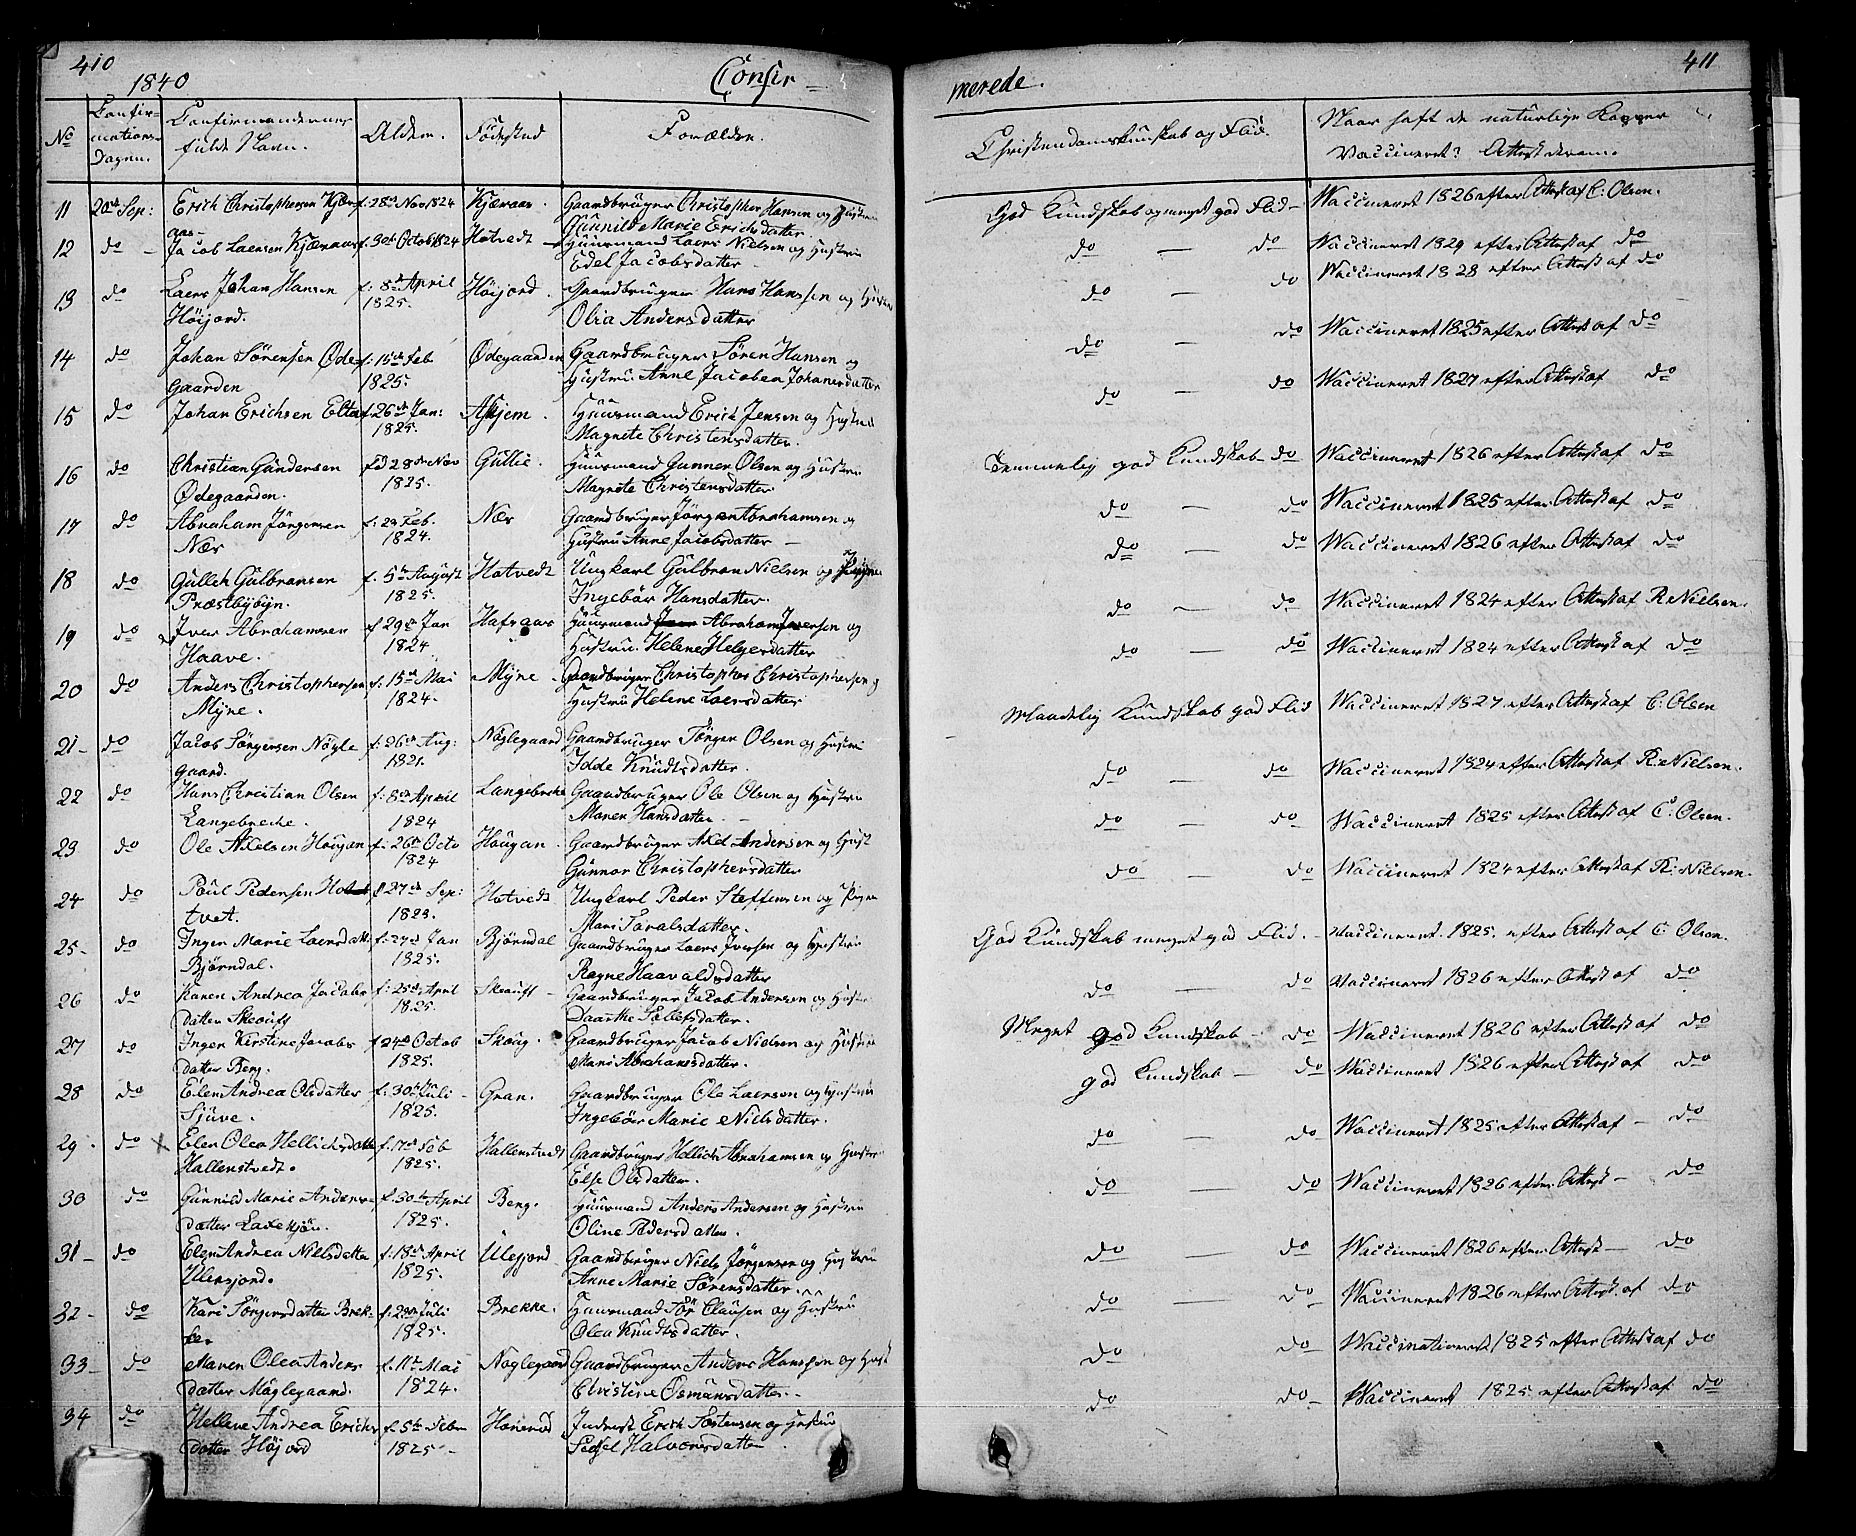 410
1840
Confir-
merede.
411
No
Confir-
mations-
Dagen.
Confirmandernes
fulde Navn.
Alder.
Fødested
Forældre.
Christendomskundskab og Flid.
Naar haft de naturlige Kopper
Vaccineret? Attest derom.
11 20de Sep: Erich Christophersen Kjær- f. 28de Nov 1824 Kjæraas. Gaardbruger Christopher Hansen og Hustru God Kundskab og meget god Flid – Waccineret 1826 efter Attest af C: Olsen.
aas – Gunnild Marie Erichsdatter
12 do – Jacob Laersen Kjæraas f. 30te Octob 1824 Hotvedt – Huusmand Laers Nielsen og Hustru do — do Waccineret 1829 efter Attest af do
Edel Jacobsdatter –
13 do Laers Johan Hansen f. 8de April Høijord. Gaardbruger Hans Hanssen og Hustru do — do Waccineret 1828 efter Attest af do
Høijord. 1825. Olia Andersdatter
14 do Johan Sörensen Øde- f. 15de Feb Ødegaarden Gaardbruger Søren Hansen og do — do Waccineret 1825 efter Attest af do
Gaarden 1825. Hustru Anne Jacobea Johanesdatter
15 do Johan Erichsen f. 26de Jan: Askjem. Huusmand Erich Jensen og Hustru do — do Waccineret 1827 efter Attest af do
1825. Magnete Christensdatter.
16 do Christian Gundersen 28de Nov Gullie. Huusmand Gunner Olsen og Hustru Temmelig god Kundskab – do Waccineret 1826 efter Attest af do
Ødegaarden. 1825. Magnete Christensdatter
17 do Abraham Jörgensen f. 29 Feb. Nær Gaardbruger Jörgen Abrahamsen og do — do Waccineret 1825 efter Attest af do
Nær 1824. Hustru Anne Jacobsdatter –
18 do Gullich Gulbransen f. 5te August Hotvedt Ungkarl Gulbran Nielsen og Pigen do — do Waccineret 1826 efter Attest af do
Præstbybyn. 1825. Ingebör Hansdatter.
19 do Iver Abrahamsen f 29de Jan Hafsaas Huusmand Abraham Iversen og do — do Waccineret 1824 efter Attest af R: Nielsen.
Haave. 1824 Hustru: Helene Helgesdatter
20 do Anders Christophersen f. 15de Mai Mÿne – Gaardbruger Christopher Christophersen og do — do Waccineret 1824 efter Attest af do
Mÿne. 1824. Hustru Helene Laersdatter
21 – do Jacob Sörgensen Nögle f. 26de Aug: Nöglegaard Gaardbruger Jörgen Olsen og Hustru Maadelig Kundskab god Flid Waccineret 1827 efter Attest af C: Olsen
gaard. 1821. Idde Knudtsdatter.
22 do Hans Christian Olsen f. 8de April Langebreche Gaardbruger Ole Olsen og Hustru do — do Waccineret 1824 efter Attest af R: Nielsen.
Langebreche. 1824 Maren Hansdatter –
23 do Ole Axelsen Hougan f. 26de Octo Hougan. Gaardbruger Axel Andersen og Hust do — do – Waccineret 1825 efter Attest af C: Olsen.
1824 Gunnor Christophersdatter
24 do Poul Pedersen Hot- f 27de Sep: Hotvedt Ungkarl Peder Steffensen og Pigen do — do – Waccineret 1824 efter Attest af R: Nielsen.
tvet. 1823. Mari Taralsdatter.
25 – do Inger Marie Laersdatt f. 27de Jan Bjørndal Gaardbruger Laers Iversen og Hustru God Kundskab meget god Flid. – Waccineret 1825. efter Attest af C: Olsen.
Bjørndal. 1825. Ragne Haavaldsdatter
26 do Karen Andrea Jacobs f. 25de April Skouft – Gaardbruger Jacob Andersen og Hustru do — do Waccineret 1826 efter Attest af do
datter Skouft 1825. Daarthe datter.
27 do Inger Kirstine Jacobs f 24de Octob Skoug. Gaardbruger Jacob Nielsen og Hustru Meget god Kundskab – do – Waccineret 1826 efter Attest af do
datter Berg. 1825. Mari Abrahamsdatter.
28 do Elen Andrea Olsdatter f. 30te Juli – Gran. Gaardbruger Ole Laersen og Hustru god Kundskab – do – Waccineret 1826 efter Attest af do
Sjüve. 1825. Ingebör Marie Nielsdatter.
29 . do X Elen Olea Hellichsdatter f. 17de Feb Hallenstvedt Gaardbruger Hellich Abrahamsen og Hustru do — do – Waccineret 1825 efter Attest af – do
Hallenstvedt. 1825. Else Olsdatter.
30 do Gunnild Marie Anders- f. 30te April Berg. Huusmand Anders Andersen og Hustru do — do – Waccineret 1826 efter Attest – do
datter 1825. Oline Pedersdatter.
31 – do Elen Andrea Nielsdatter f. 18de April Ulegjord Gaardbruger Niels Jørgensen og Hustru do — do – Waccineret 1826 efter Attest – do
1825. Anne Marie Sørensdatter.
32 – do Kari Sörgensdatter Brek- f. 23de Juli Brekke. Huusmand Clausen og Hustru do — do – Waccineret 1826 efter Attest af do
ke. 1825. Olea Knudtsdatter.
33 – do Maren Olea Anders f. 11te Mai Nöglegaard Gaardbruger Anders Hanssen og Hust do do – Waccinationeret 1825 efter Attest af do
datter Nöglegaard. 1824. Christine Osmunsdatter –
34 do Hellene Andrea Erichs f. 5te Honerød Inderst Erich og Hustru do do – Waccineret 1825 efter Attest af do
datter Höjord 1825 – Sidsel Halvorsdatter